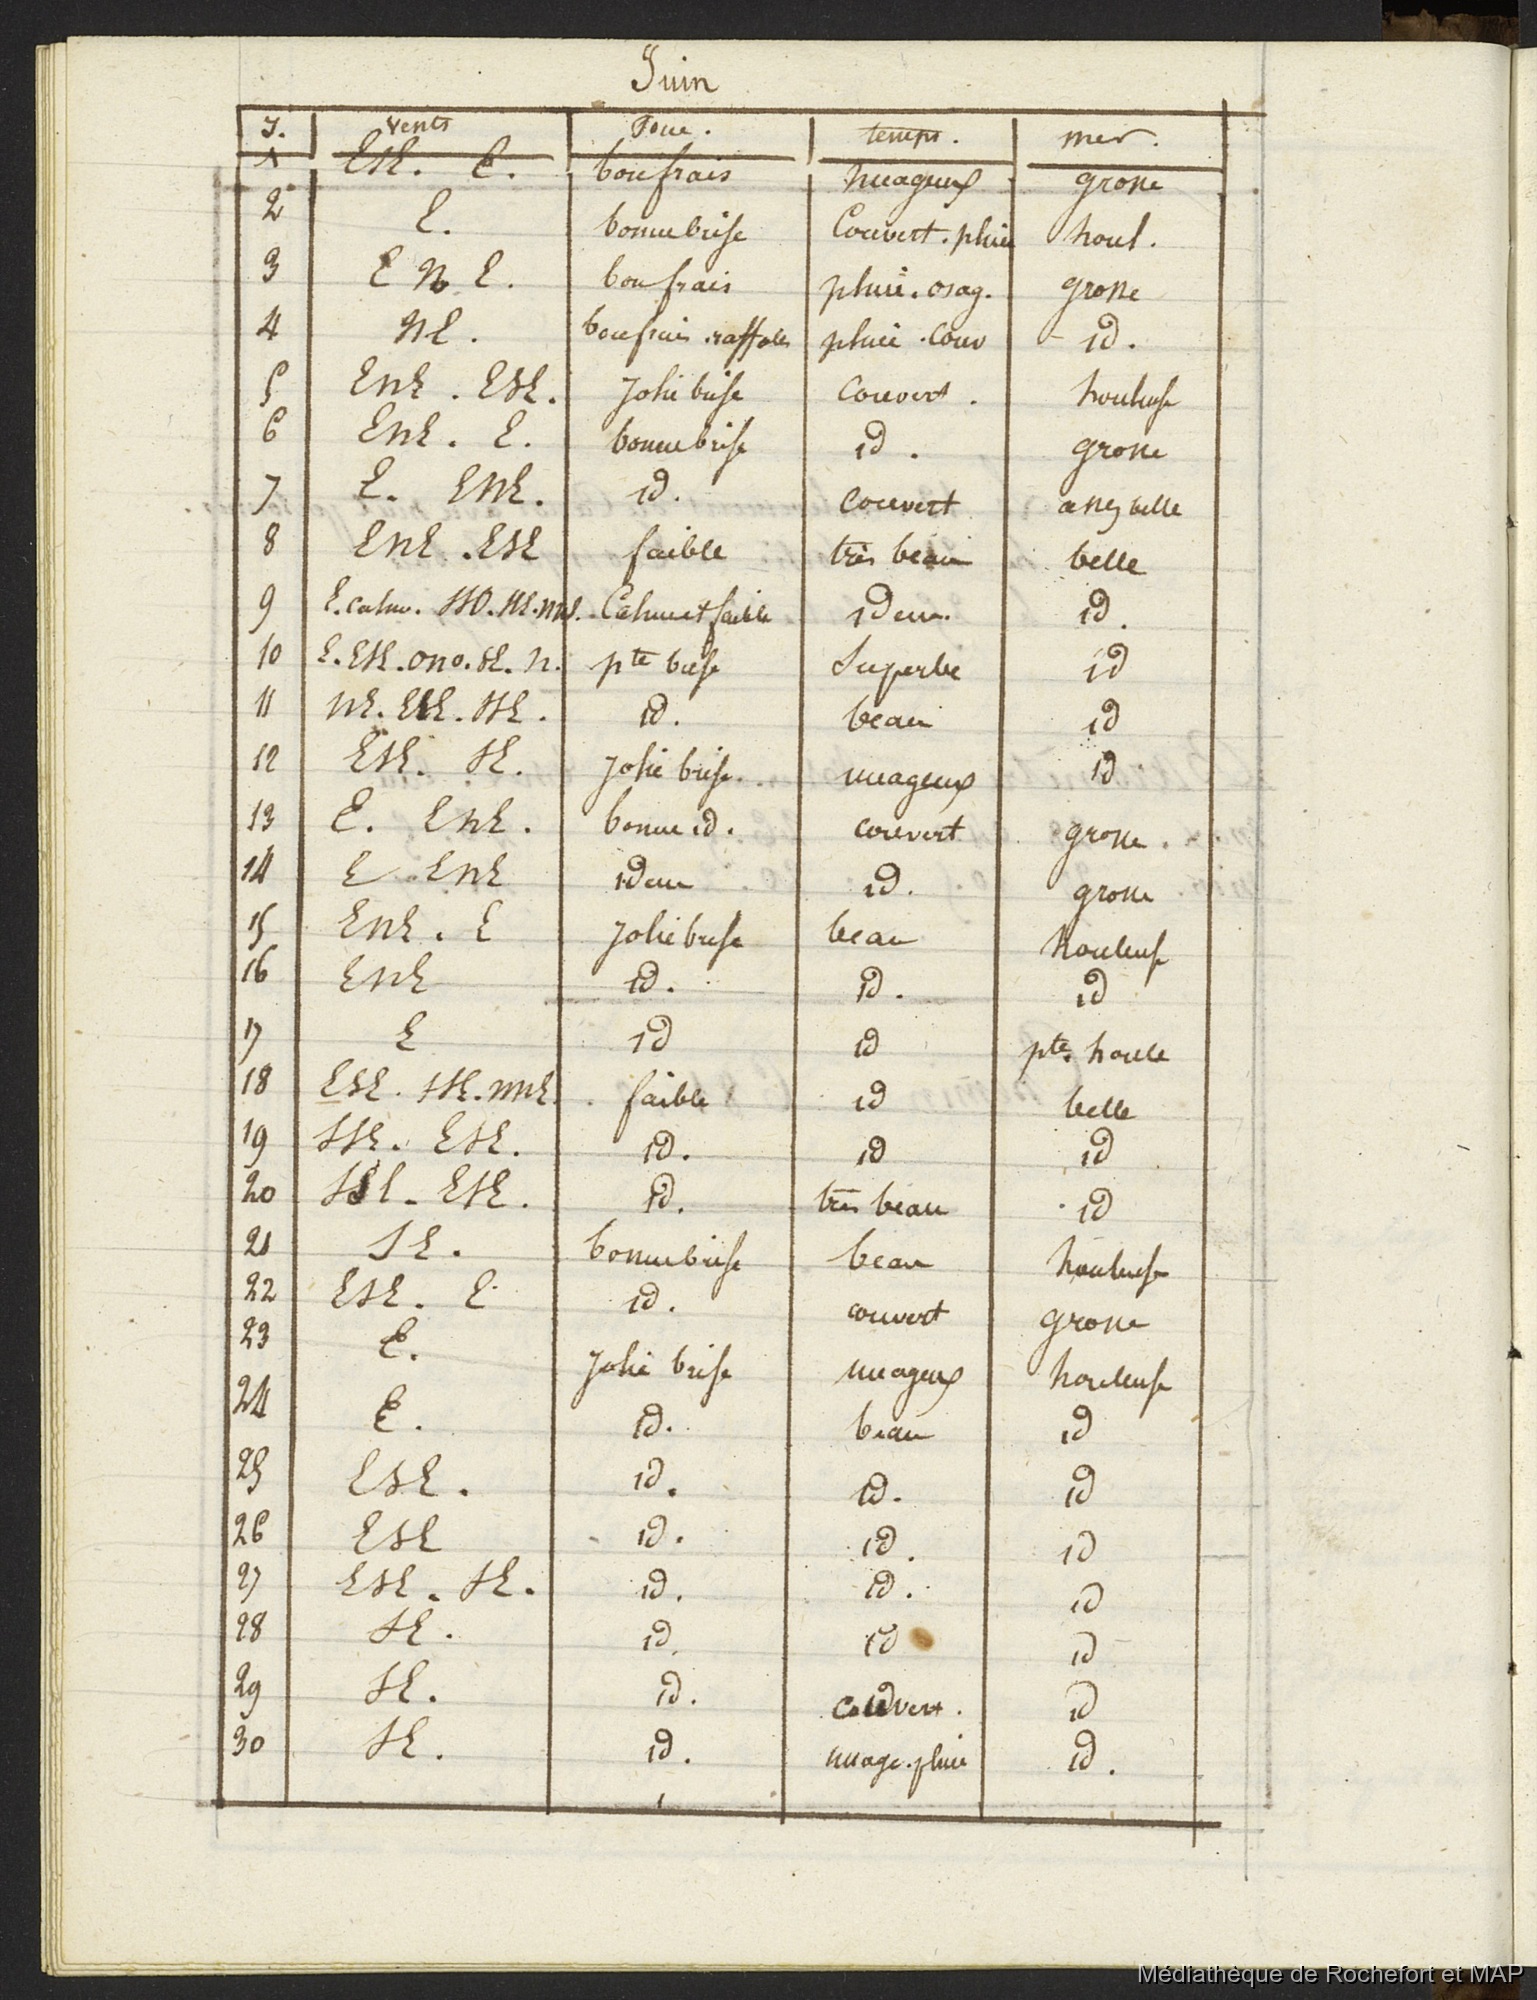 Juin
J. vents Force. temps. mer.
1 ESE. E. bon frais nuageux grosse
2 E. bonne brise Couvert. pluie houl.
3 E N E. bon frais pluie. orag. grosse
4 NE. bon frais. raffales pluie. Couv id.
5 ENE. ESE. Jolie brise Couvert. houleuse
6 ENE. E. bonne brise id. grosse
7 E. ENE. id. Couvert assez belle
8 ENE. ESE faible très beau belle
9 E. calme. SSO. Calme et faible idem. id.
10 E. ESE. ONO. SE. N. pte brise Superbe id
11 NE. ESE. SSE. id. beau id
12 ESE. SE. Jolie brise. nuageux id
13 E. ENE. bonne id. couvert grosse.
14 E ENE idem id. grosse
15 ENE. E Jolie brise beau houleuse
16 ENE id. id. id
17 E id id pte. houle
18 ESE. SSE. NNE. faible id belle
19 SSE. ESE. id. id id
20 SSE. ESE. id. très beau id
21 SE. bonne brise beau houleuse
22 ESE. E id. couvert grosse
23 E. Jolie brise nuageux houleuse
24 E. id. beau id
25 ESE. id. id. id
26 ESE id. id. id
27 ESE. SE. id. id. id
28 SE. id. id id
29 SE. id. couvert. id
30 SE. id. nuage. pluie id.
Médiathèque de Rochefort et MAP